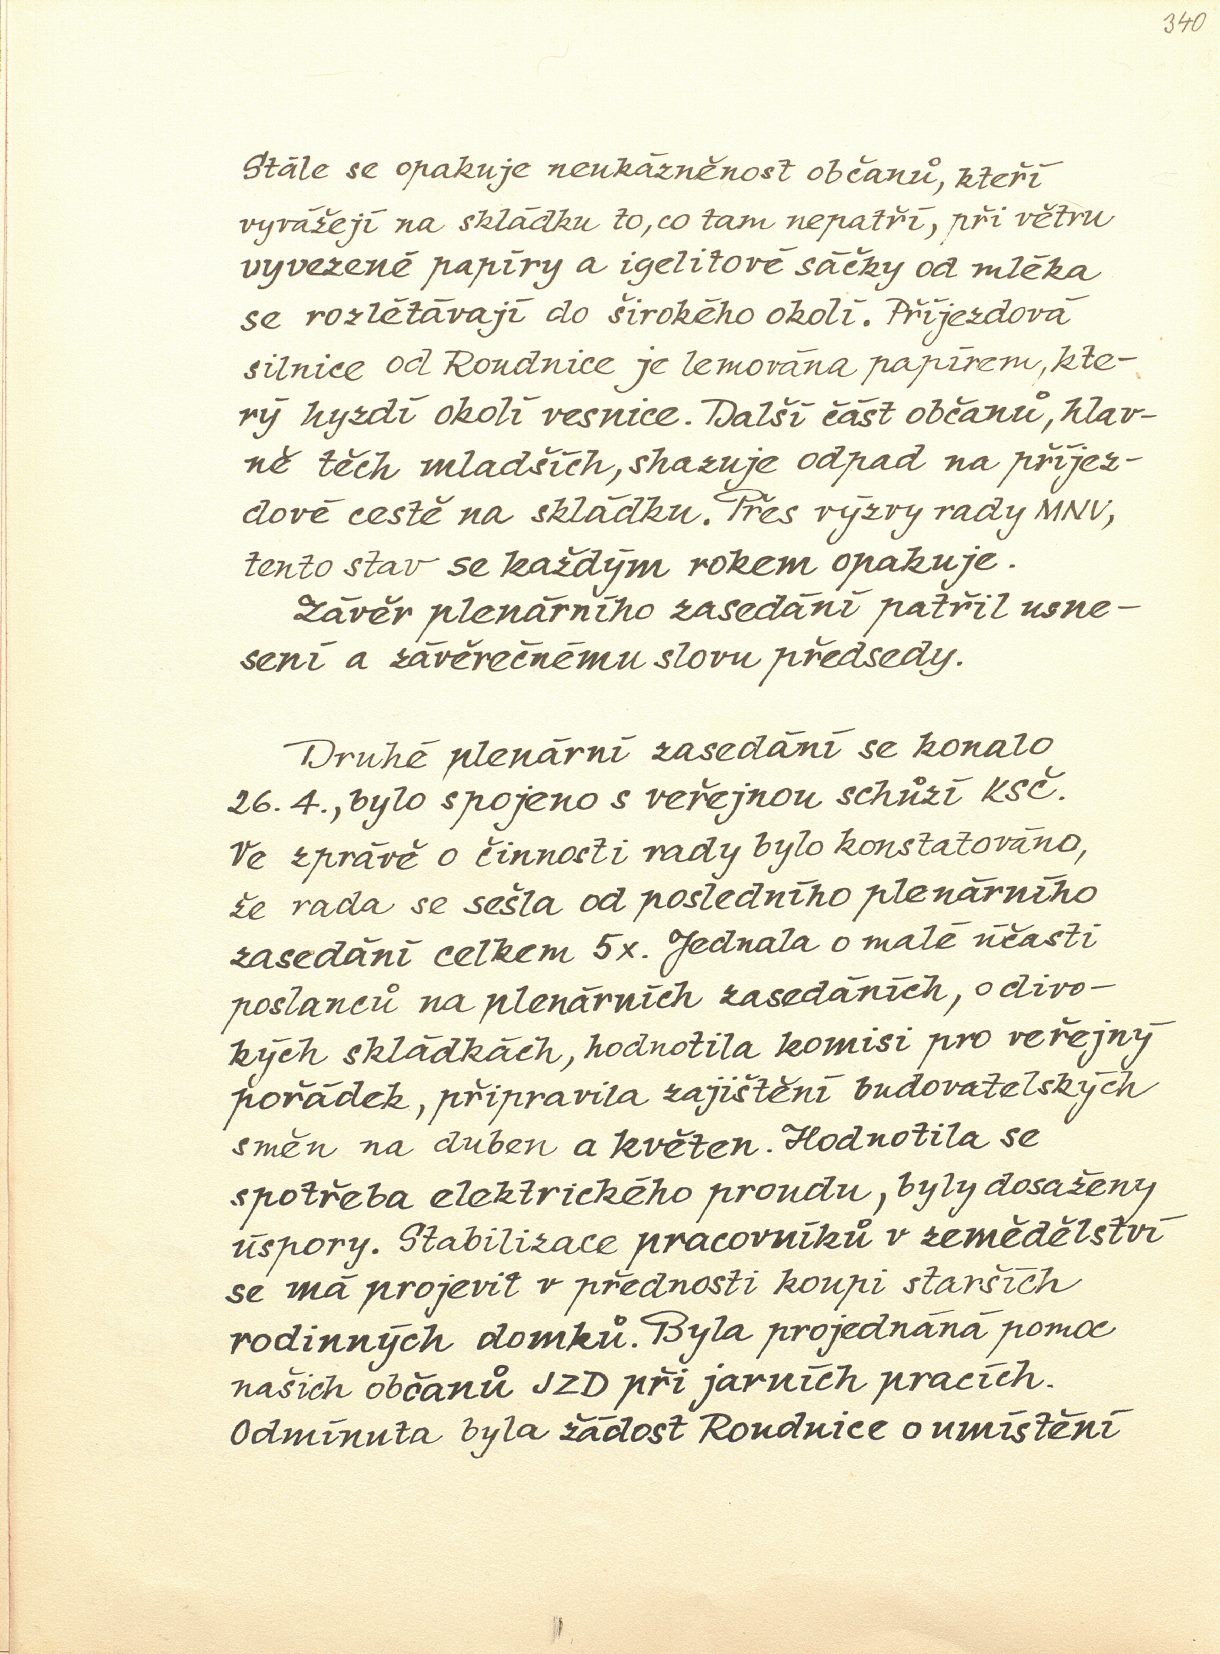 340
Stále se opakuje neukázněnost občanů, kteří
vyvážejí na skládku to, co tam nepatří, při větru
vyvezené papíry a igelitové sáčky od mléka
se rozlétávají do širokého okolí. Příjezdová
silnice od Roudnice je lemována papírem, kte-
rý hyzdí okolí vesnice. Další část občanů, hlav-
ně těch mladších, shazuje odpad na příjez-
dové cestě na skládku. Přes výzvy rady MNV,
tento stav se každým rokem opakuje.
Závěr plenárního zasedání patřil usne-
sení a závěrečnému slovu předsedy.
Druhé plenární zasedání se konalo
26. 4., bylo spojeno s veřejnou schůzí KSČ.
Ve zprávě o činnosti rady bylo konstatováno,
že rada se sešla od posledního plenárního
zasedání celkem 5x. Jednala o malé účasti
poslanců na plenárních zasedáních, o divo-
kých skládkách, hodnotila komisi pro veřejný
pořádek, připravila zajištění budovatelských
směn na duben a květen. Hodnotila se
spotřeba elektrického proudu, byly dosaženy
úspory. Stabilizace pracovníků v zemědělství
se má projevit v přednosti koupi starších
rodinných domků. Byla projednáná pomoc
našich občanů JZD při jarních pracích.
Odmínuta byla žádost Roudnice o umístění